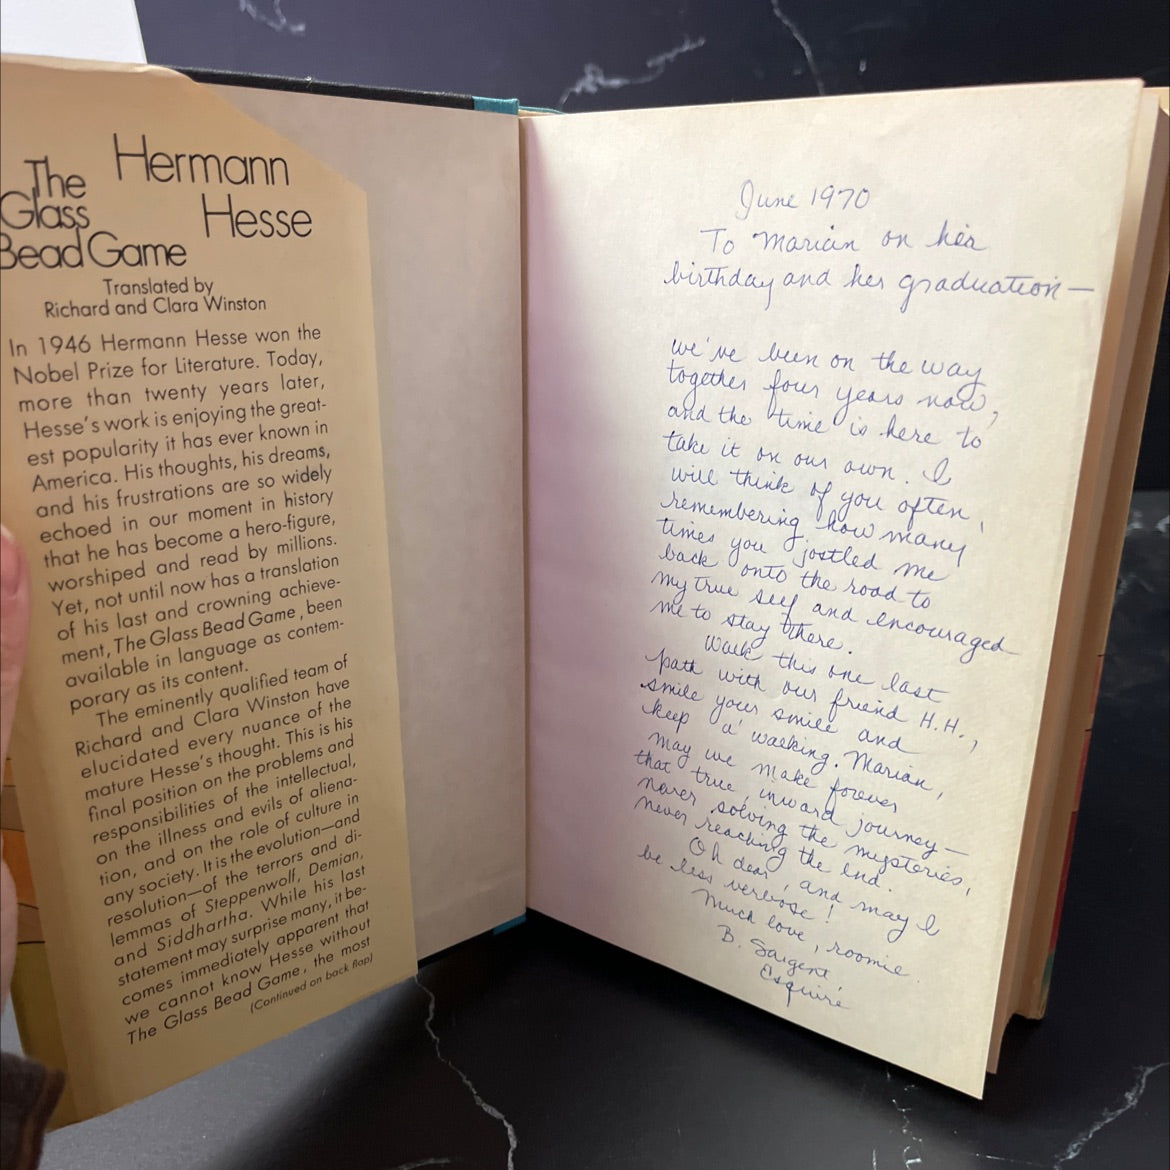 The
Glass
Bead Game
Hermann
Hesse
Translated by
Richard and Clara Winston
In 1946 Hermann Hesse won the
Nobel Prize for Literature. Today,
more than twenty years later,
Hesse's work is enjoying the great-
est popularity it has ever known in
America. His thoughts, his dreams,
and his frustrations are so widely
echoed in our moment in history
that he has become a hero-figure,
worshiped and read by millions.
Yet, not until now has a translation
of his last and crowning achieve-
ment, The Glass Bead Game, been
available in language as contem-
porary as its content.
The eminently qualified team of
Richard and Clara Winston have
elucidated every nuance of the
mature Hesse's thought. This is his
final position on the problems and
responsibilities of the intellectual,
on the illness and evils of aliena-
tion, and on the role of culture in
any society. It is the evolution—and
resolution—of the terrors and di-
lemmas of Steppenwolf, Demian,
and Siddhartha. While his last
statement may surprise many, it be-
comes immediately apparent that
we cannot know Hesse without
The Glass Bead Game, the most
(Continued on back flap)
June 1970
To Marian on her
birthday and her graduation—
we've been on the way
together four years now,
and the time is here to
take it on our own. I
will think of you often,
remembering how many
times you jostled me
back onto the road to
my true self and encouraged
me to stay there.
Walk this one last
path with our friend H.H.,
smile your smile and
keep a' walking. Marian,
may we make forever
that true, inward journey—
never solving the mysteries,
never reaching the end.
Oh dear, and may I
be less verbose!
Much love, roomie.
B. Sargent
Esquire